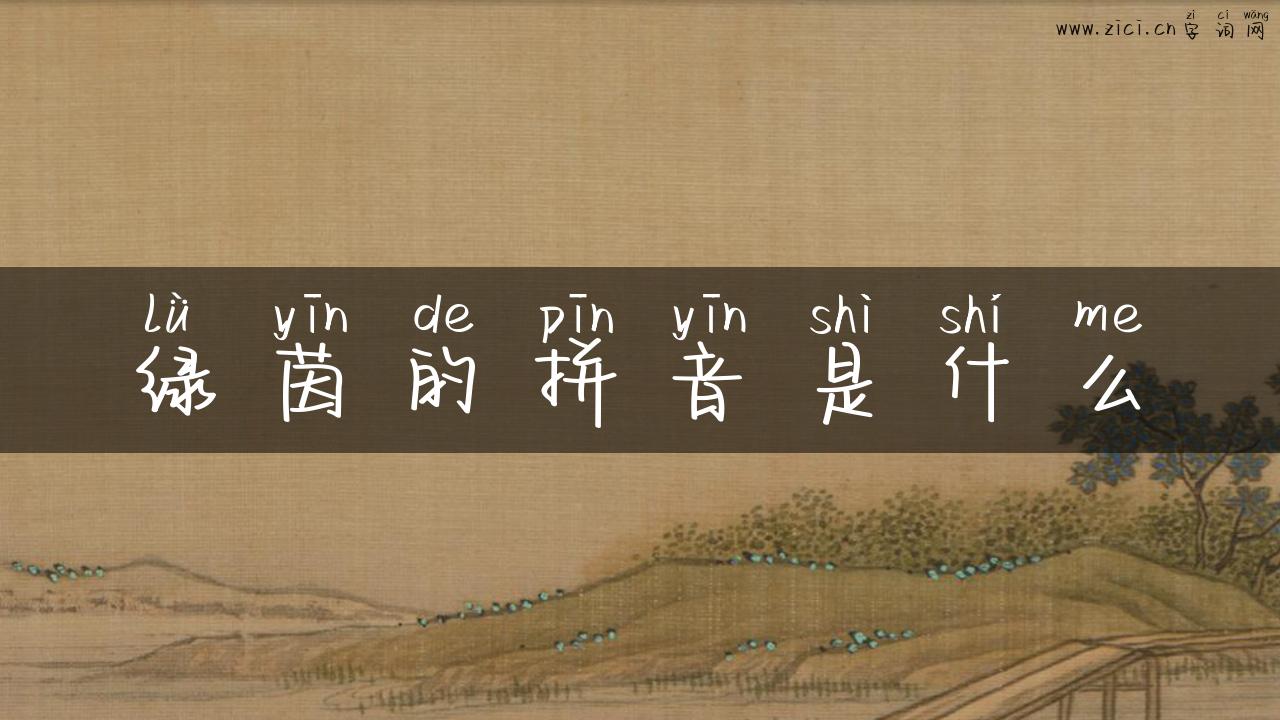 zì cí wǎng
www.zici.cn 字 词 网
lǜ yīn de pīn yīn shì shí me
绿 茵 的 拼 音 是 什 么